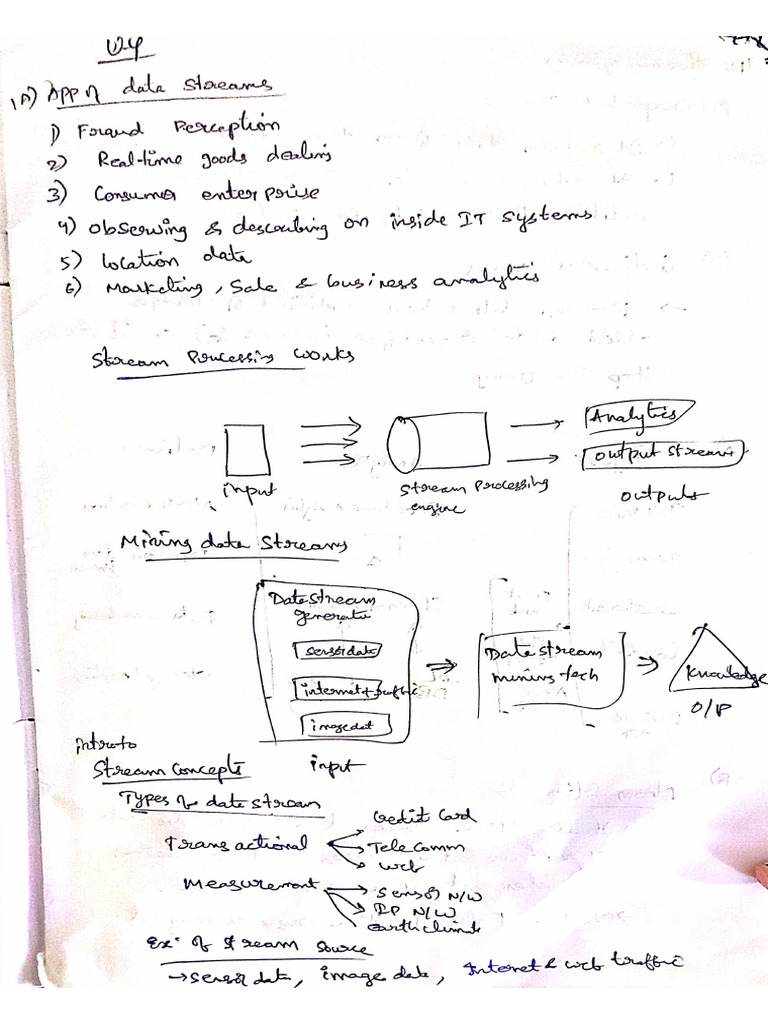 U4
1A) APP of data streams
1) Foraud Perception
2) Real-time goods dealins
3) Consumer enterprise
4) Observing & describing on inside IT systems.
5) Location data
6) Marketing, Sale & business analytics
Stream Processing works
Analytics
output stream
input
stream processing
engine
outputs
Mining data streams
Data stream
generati
sensor data
internet + traffic
image dat
Data stream
mining tech
Knowledge
O/P
input
intro to
Stream Concepts
Types of data stream
Transactional
Credit Card
Tele Comm
web
Measurement
Sensor N/W
IP N/W
earth climate
Ex: of stream source
→ sensor data, image data, Internet & web traffic